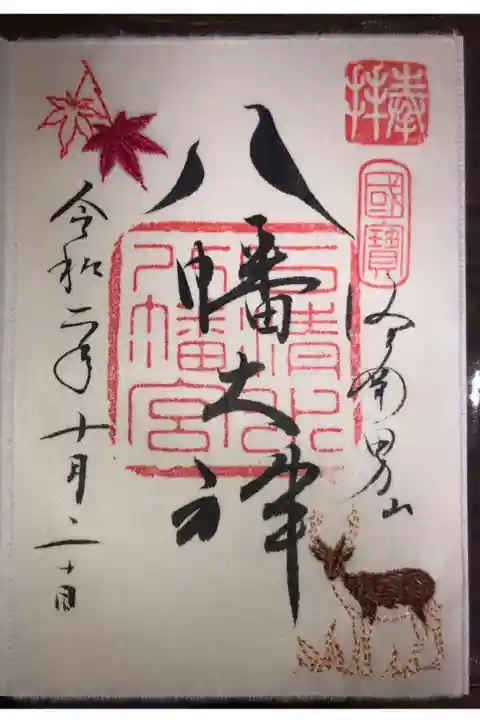 奉拝
國寶
洛南男山
八幡大神
石清水八幡宮
令和二年十月二十日